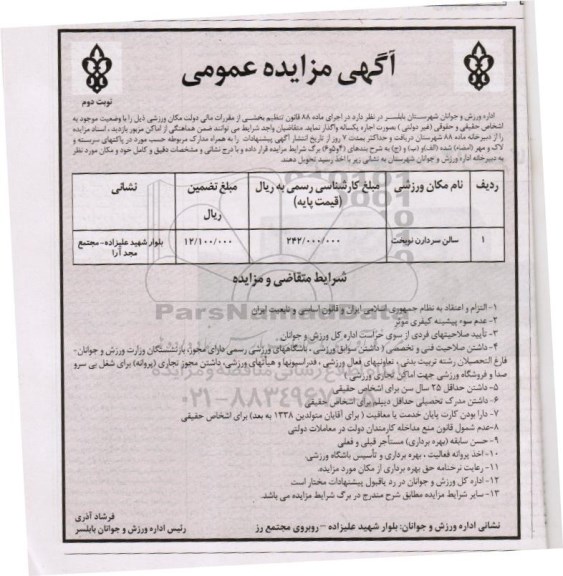 آگهی مزایده عمومی
نوبت دوم
اداره ورزش و جوانان شهرستان بابلسر در نظر دارد در اجرای ماده ۸۸ قانون تنظیم بخشی از مقررات مالی دولت مکان ورزشی ذیل را با وضعیت موجود به
اشخاص حقیقی و حقوقی (غیر دولتی) بصورت اجاره یکساله واگذار نماید. متقاضیان واجد شرایط می توانند ضمن هماهنگی از اماکن مزبور بازدید، اسناد مزایده
را از دبیرخانه ماده ۸۸ شهرستان دریافت و حداکثر بمدت ۷ روز از تاریخ انتشار آگهی پیشنهادات را به همراه مدارک مربوطه حسب مورد در پاکتهای سربسته و
لاک و مهر (امضاء) شده (الف) و (ب) و (ج) به شرح بندهای (۴و۵و۶) برگ شرایط مزایده قرار داده و با درج نشانی و مشخصات دقیق و کامل خود و مکان مورد نظر
به دبیرخانه اداره ورزش و جوانان شهرستان به نشانی زیر با اخذ رسید تحویل دهند.
ردیف نام مکان ورزشی مبلغ کارشناسی رسمی به ریال (قیمت پایه) مبلغ تضمین ریال نشانی
۱ سالن سردارن نوبخت ۲۴۲/۰۰۰/۰۰۰ ۱۲/۱۰۰/۰۰۰ بلوار شهید علیزاده- مجتمع مجد آرا
شرایط متقاضی و مزایده
۱- التزام و اعتقاد به نظام جمهوری اسلامی ایران و قانون اساسی و تابعیت ایران
۲- عدم سوء پیشینه کیفری موثر
۳- تأیید صلاحیتهای فردی از سوی حراست اداره کل ورزش و جوانان
۴- داشتن صلاحیت فنی و تخصصی ( داشتن سوابق ورزشی، باشگاههای ورزشی رسمی دارای مجوز، بازنشستگان وزارت ورزش و جوانان-
فارغ التحصیلان رشته تربیت بدنی، تعاونیهای فعال ورزشی، فدراسیونها و هیأتهای ورزشی، داشتن مجوز تجاری (پروانه) برای شغل بی سرو
صدا و فروشگاه ورزشی جهت اماکن تجاری ورزشی)
۵- داشتن حداقل ۲۵ سال سن برای اشخاص حقیقی
۶- داشتن مدرک تحصیلی حداقل دیپلم برای اشخاص حقیقی
۷- دارا بودن کارت پایان خدمت یا معافیت ( برای آقایان متولدین ۱۳۳۸ به بعد) برای اشخاص حقیقی
۸-عدم شمول قانون منع مداخله کارمندان دولت در معاملات دولتی
۹- حسن سابقه (بهره برداری) مستأجر قبلی و فعلی
۱۰- اخذ پروانه فعالیت، بهره برداری و تأسیس باشگاه ورزشی
۱۱- رعایت نرخنامه حق بهره برداری از مکان مورد مزایده.
۱۲- اداره کل ورزش و جوانان در رد یاقبول پیشنهادات مختار است
۱۳- سایر شرایط مزایده مطابق شرح مندرج در برگ شرایط مزایده می باشد.
نشانی اداره ورزش و جوانان: بلوار شهید علیزاده – روبروی مجتمع رز
فرشاد آذری
رئیس اداره ورزش و جوانان بابلسر
ParsNamadData
۰۲۱-۸۸۳۴۹۶۷۰